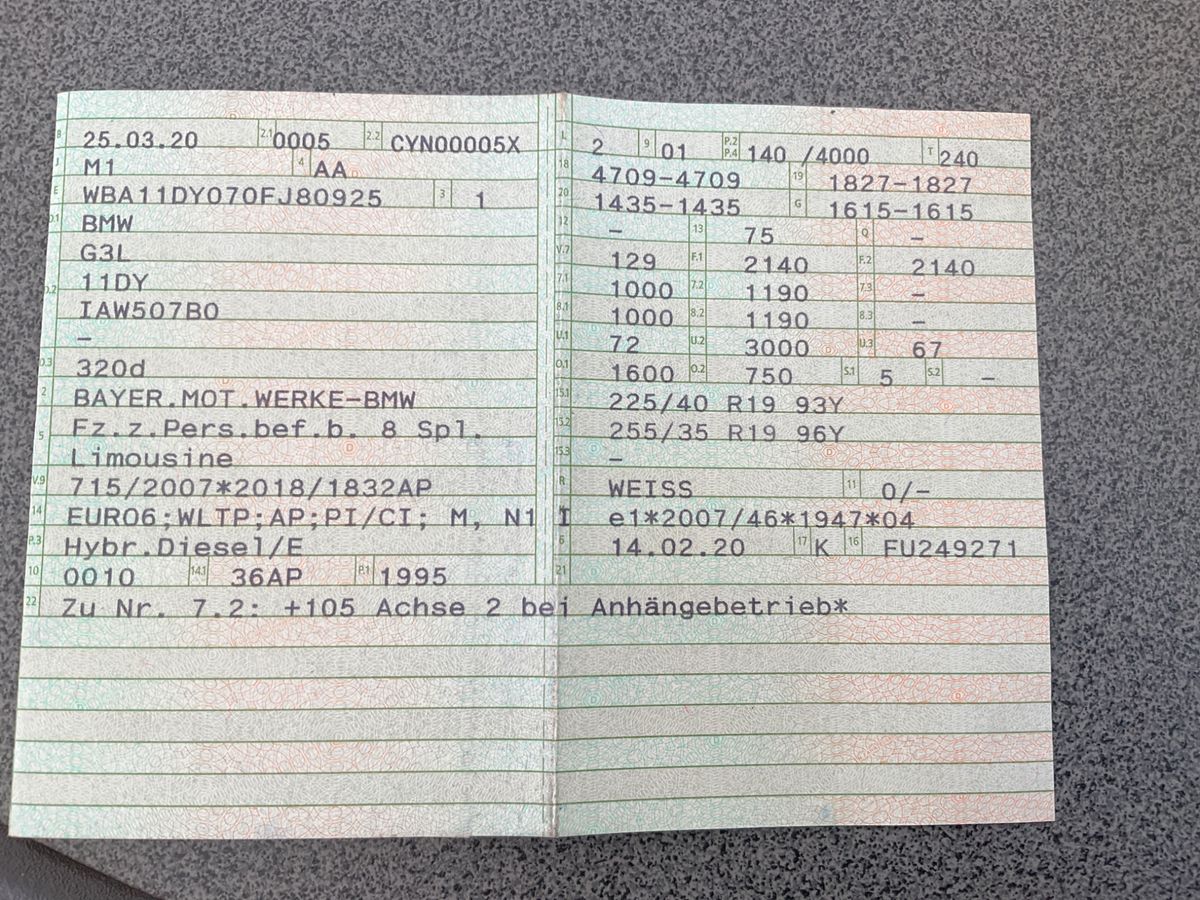 B 25.03.20 2.1 0005 2.2 CYN00005X
J M1 4 AA
E WBA11DY070FJ80925 3 1
D.1 BMW
G3L
D.2 11DY
IAW507B0
–
D.3 320d
2 BAYER.MOT.WERKE-BMW
5 Fz.z.Pers.bef.b. 8 Spl.
Limousine
V.9 715/2007*2018/1832AP
14 EURO6;WLTP;AP;PI/CI; M, N1 I
P.3 Hybr.Diesel/E
10 0010 14.1 36AP P.1 1995
L 2 9 01 P.2 P.4 140 /4000 T 240
18 4709-4709 19 1827-1827
20 1435-1435 G 1615-1615
12 – 13 75 Q –
V.7 129 F.1 2140 F.2 2140
7.1 1000 7.2 1190 7.3 –
8.1 1000 8.2 1190 8.3 –
U.1 72 U.2 3000 U.3 67
O.1 1600 O.2 750 S.1 5 S.2 –
15.1 225/40 R19 93Y
15.2 255/35 R19 96Y
15.3 –
R WEISS 11 0/–
e1*2007/46*1947*04
6 14.02.20 17 K 16 FU249271
21
22 Zu Nr. 7.2: +105 Achse 2 bei Anhängebetrieb*